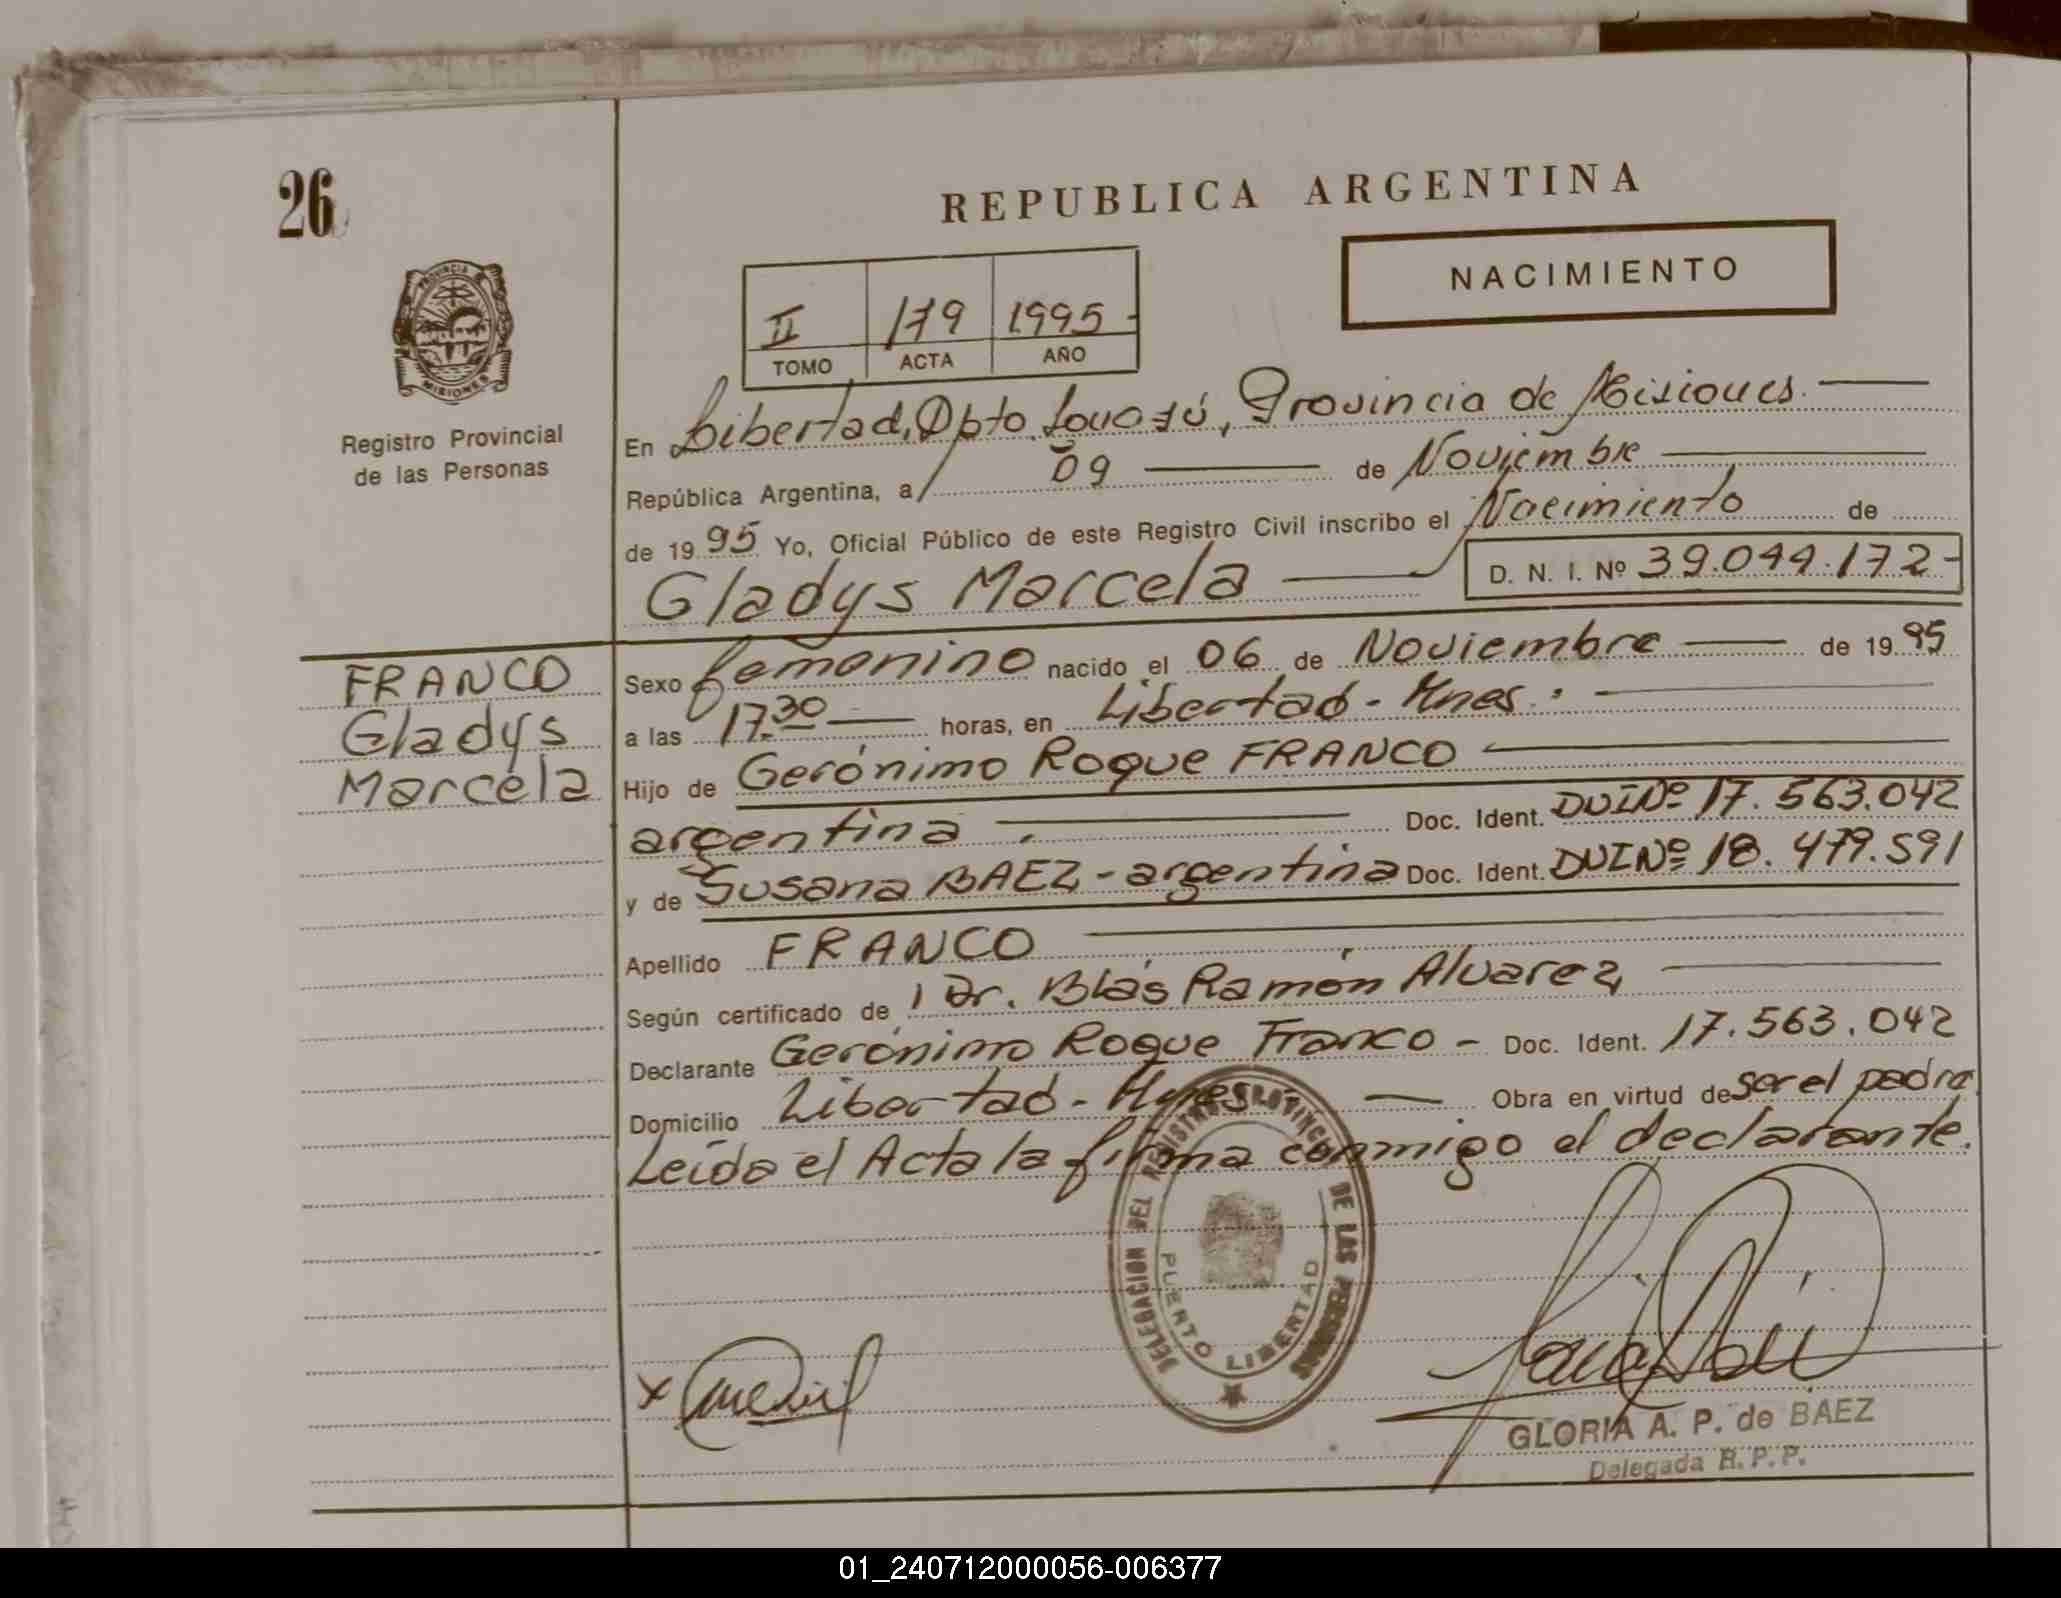 26
REPUBLICA ARGENTINA
NACIMIENTO
PROVINCIA
MISIONES
Registro Provincial
de las Personas
II 179 1995-
TOMO ACTA AÑO
En Libertad, Dpto. Iguazú, Provincia de Misiones.
República Argentina, a 09 de Noviembre
de 1995 Yo, Oficial Público de este Registro Civil inscribo el Nacimiento de
Gladys Marcela D. N. I. Nº 39.044.172-
FRANCO
Gladys
Marcela
Sexo femenino nacido el 06 de Noviembre de 1995
a las 17.30 horas, en Libertad - Mnes.
Hijo de Gerónimo Roque FRANCO
argentina. Doc. Ident. DNI Nº 17.563.042
y de Susana BAEZ - argentina Doc. Ident. DNI Nº 18.479.591
Apellido FRANCO
Según certificado de Dr. Blás Ramón Alvarez
Declarante Gerónimo Roque Franco - Doc. Ident. 17.563.042
Domicilio Libertad - Mnes Obra en virtud de ser el padre
Leída el Acta la firma conmigo el declarante.
DELEGACION DEL REGISTRO PROVINCIAL DE LAS PERSONAS
PUERTO LIBERTAD
GLORIA A. P. de BAEZ
Delegada R. P. P.
01_240712000056-006377